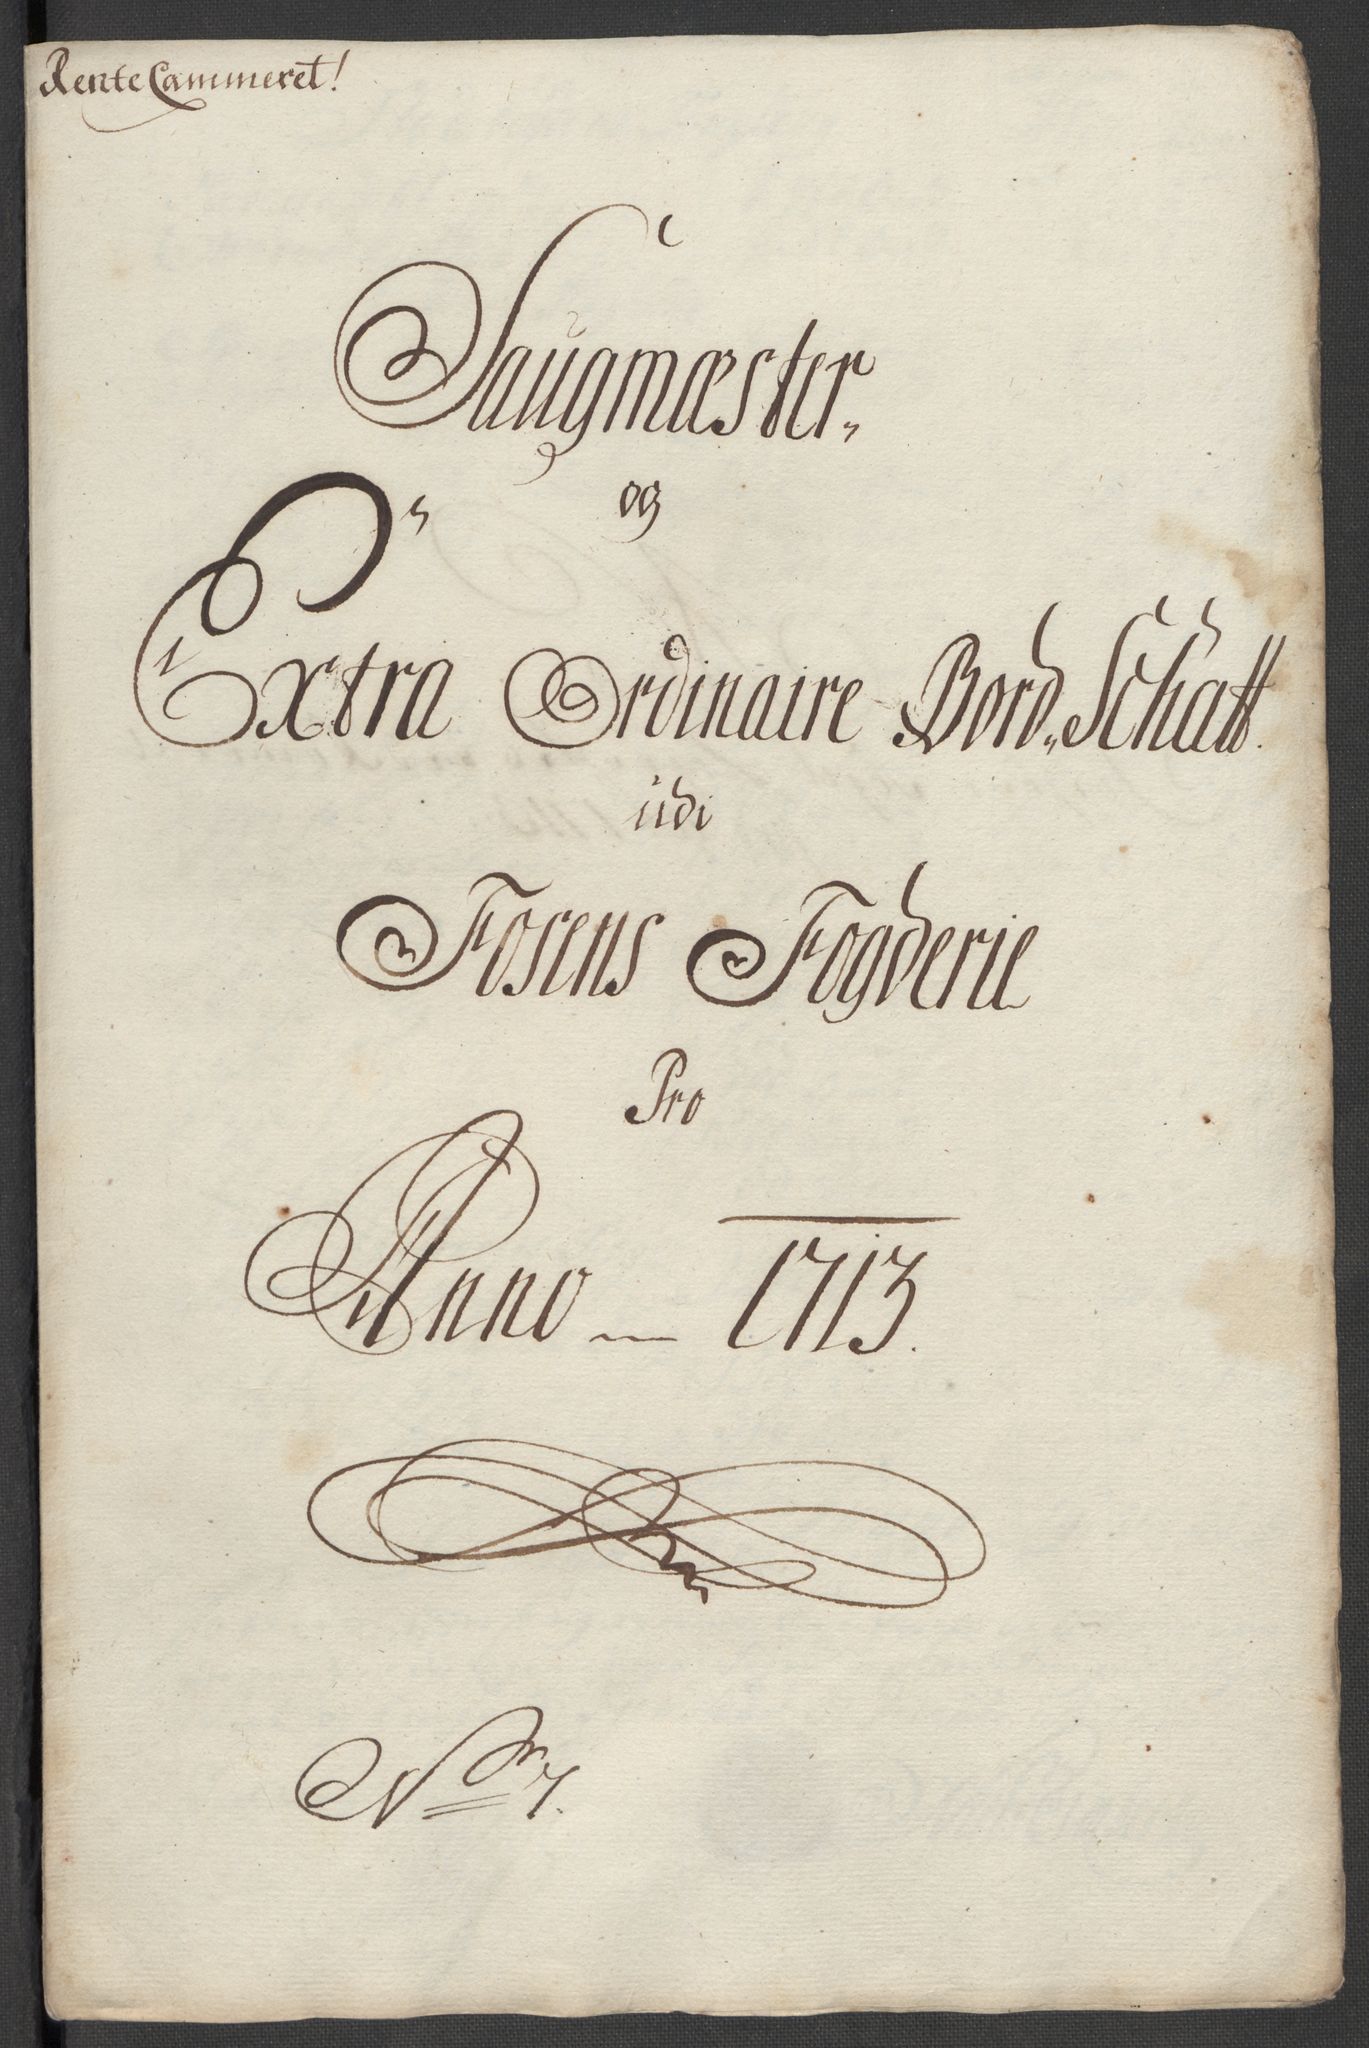 Rente Cammeret!
Saugmæster„
og
Extra Ordinaire Bord„ Schatt.
udi
Fosens Fogderie
Pro
Anno — 1713.
Nr 7.